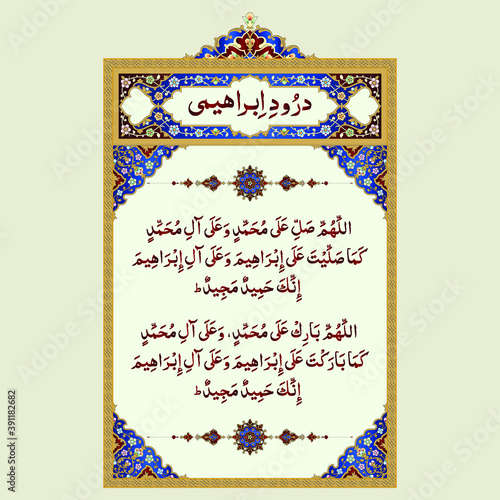 درُودِ اِبراهیمی
اللّٰهُمَّ صَلِّ عَلَى مُحَمَّدٍ وَعَلَى آلِ مُحَمَّدٍ
كَمَا صَلَّيْتَ عَلَى إِبْرَاهِيمَ وَعَلَى آلِ إِبْرَاهِيمَ
إِنَّكَ حَمِيدٌ مَجِيدٌ ط
اللّٰهُمَّ بَارِكْ عَلَى مُحَمَّدٍ، وَعَلَى آلِ مُحَمَّدٍ
كَمَا بَارَكْتَ عَلَى إِبْرَاهِيمَ وَعَلَى آلِ إِبْرَاهِيمَ
إِنَّكَ حَمِيدٌ مَجِيدٌ ط
Adobe Stock | #391182682